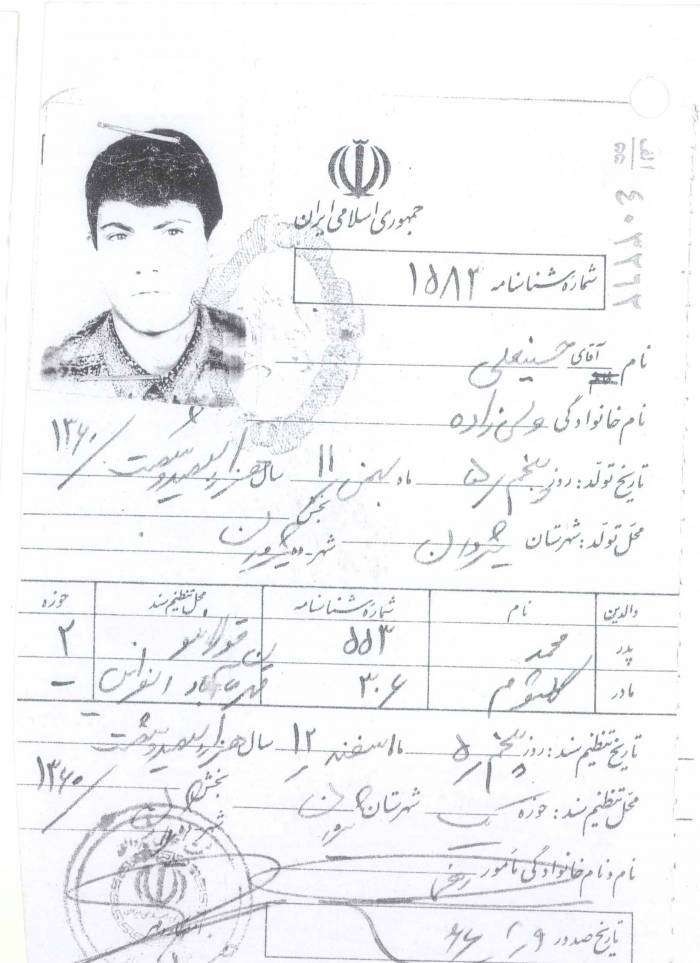 جمهوری اسلامی ایران
الف
۵۵
۴۰۳۲۲۶۲
شماره شناسنامه ۱۵۸۳
نام آقای حسینعلی
نام خانوادگی ولی زاده
تاریخ تولد: روز پنجم ۵ ماه بهمن ۱۱ سال هزار و سیصد و شصت ۱۳۶۰
محل تولد: شهرستان شیروان بخش شهر
والدین نام شماره شناسنامه محل تنظیم سند حوزه
پدر محمد ۵۵۳ ۲
مادر کلثوم ۳۰۶ –
تاریخ تنظیم سند: روز پنجم ۵ ماه اسفند ۱۲ سال هزار و سیصد و شصت ۱۳۶۰
محل تنظیم سند: حوزه یک شهرستان شیروان بخش شهر
نام و نام خانوادگی مأمور
تاریخ صدور